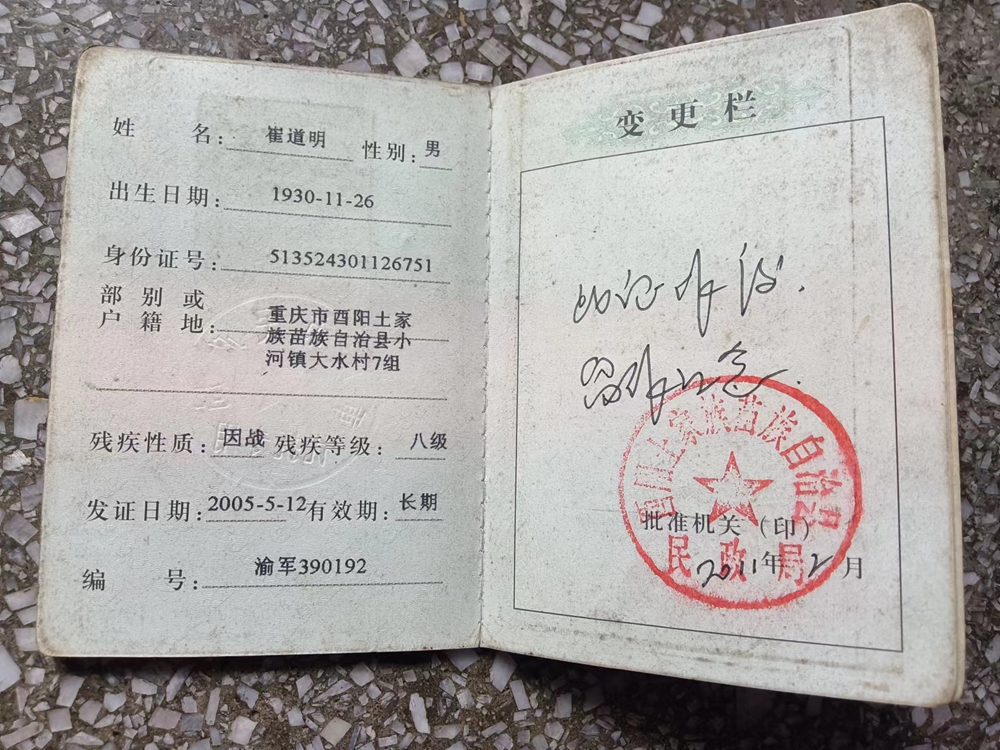 姓 名: 崔道明 性别: 男
出生日期: 1930-11-26
身份证号: 513524301126751
部别或
户籍地: 重庆市酉阳土家
族苗族自治县小
河镇大水村7组
残疾性质: 因战 残疾等级: 八级
发证日期: 2005-5-12 有效期: 长期
编 号: 渝军390192
变更栏
此证作废.
留作纪念.
土家族苗族自治县
批准机关(印)
民政局
2011年12月